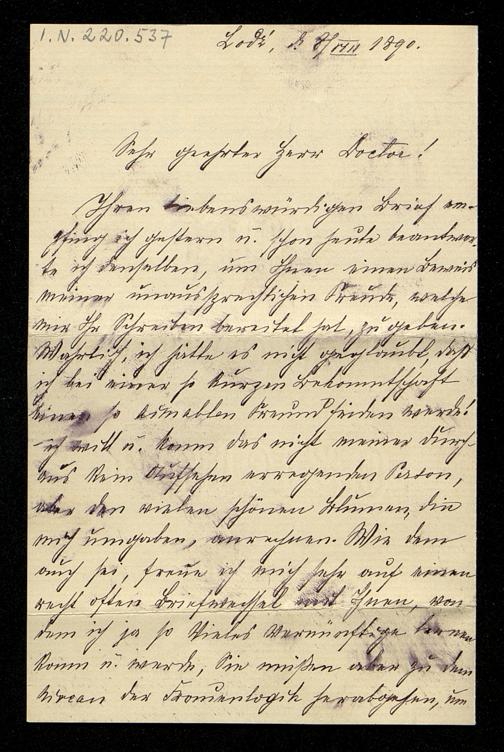 I.N. 220.537
Lodź, d. 8/VIII 1890.
Sehr geehrter Herr Doctor!
Ihren liebenswürdigen Brief em-
pfing ich gestern u. schon heute beantwor-
te ich denselben, um Ihnen einen Beweis
meiner unaussprechlichen Freude, welche
mir Ihr Schreiben bereitet hat, zu geben.
Wahrlich, ich hätte es nicht geglaubt, daß
ich bei einer so kurzen Bekanntschaft
einen so aimablen Freund finden werde!
ich will u. kann das nicht meiner durch-
aus kein Aufsehen erregenden Person,
aber den vielen schönen Blumen, die
mich umgaben, anrechnen. Wie dem
auch sei, freue ich mich sehr auf einen
recht often Briefwechsel mit Ihnen, von
dem ich ja so Vieles Vernünftige lernen
kann u. werde, Sie müßen aber zu dem
Niveau der Frauenlogik herabgehen, um